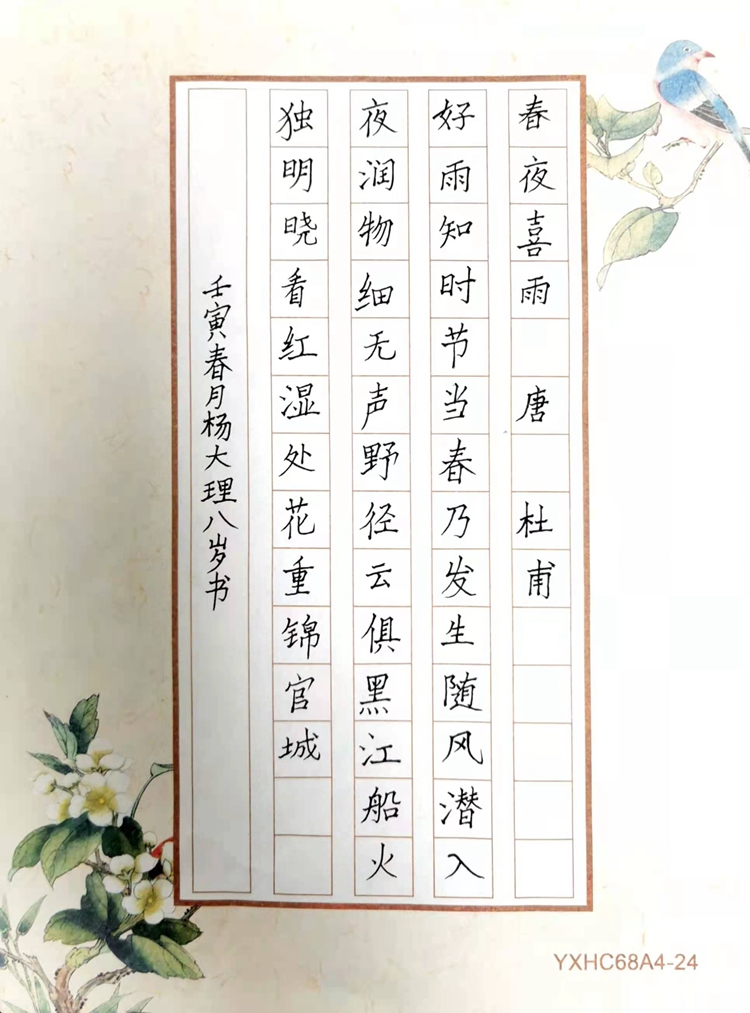 春夜喜雨 唐 杜甫
好雨知时节当春乃发生随风潜入
夜润物细无声野径云俱黑江船火
独明晓看红湿处花重锦官城
壬寅春月杨大理八岁书
YXHC68A4-24